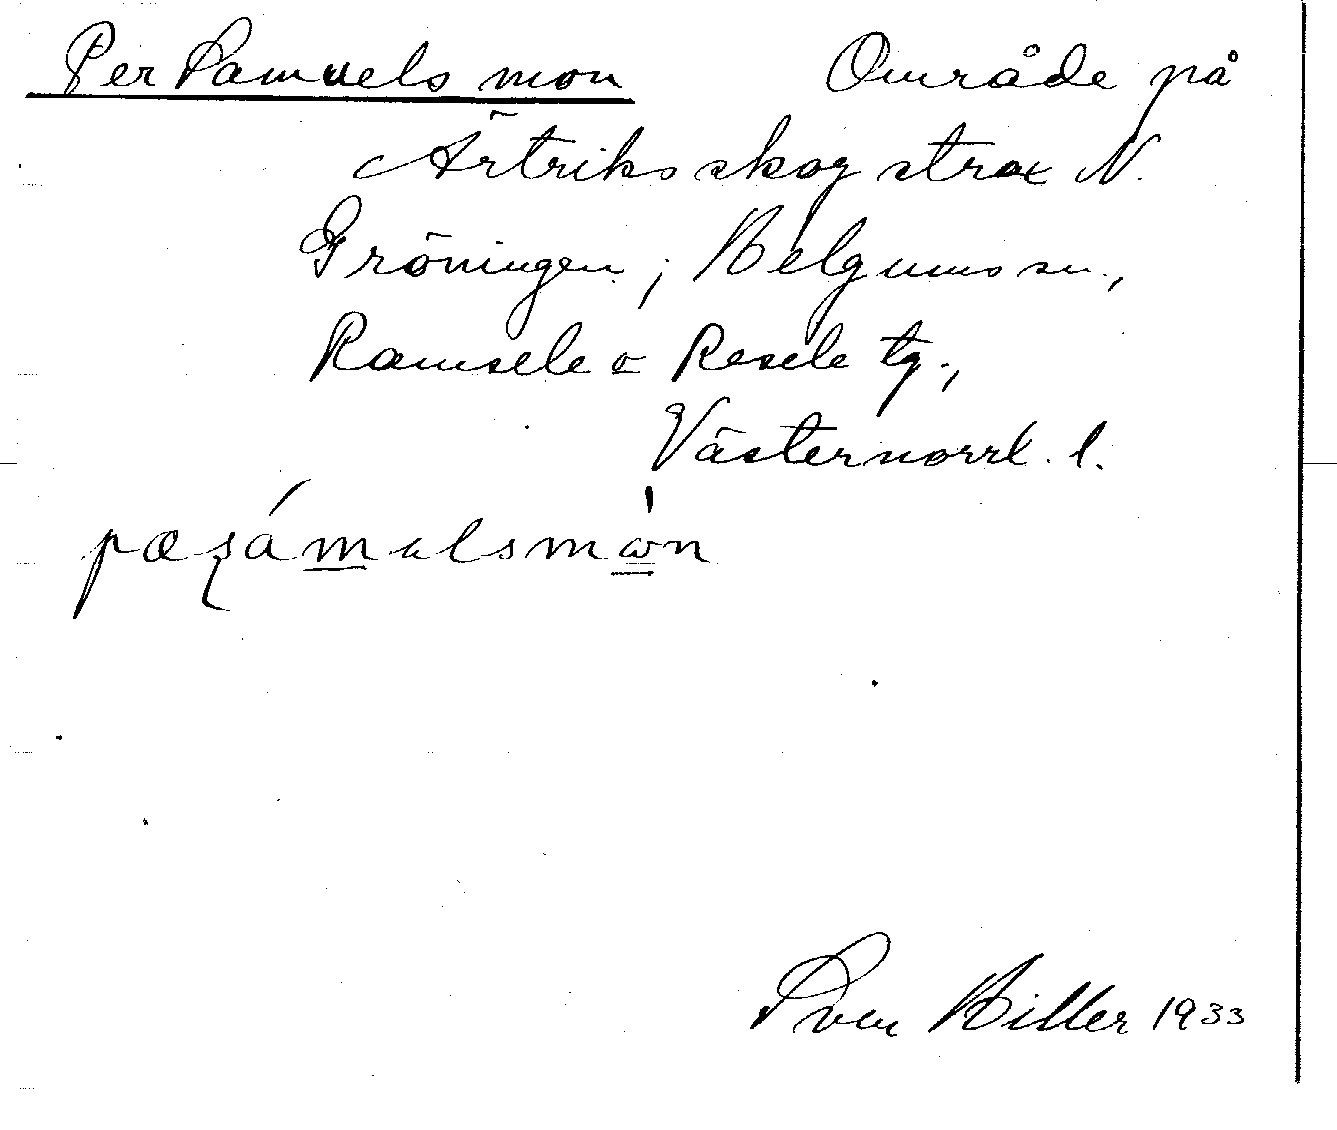 Per Samuels mon Område på
Ärtriks skog strax N.
Gröningen, Helgums sn.,
Ramsele o Resele tg.,
Västernorrl. l.
Sven Hiller 1933